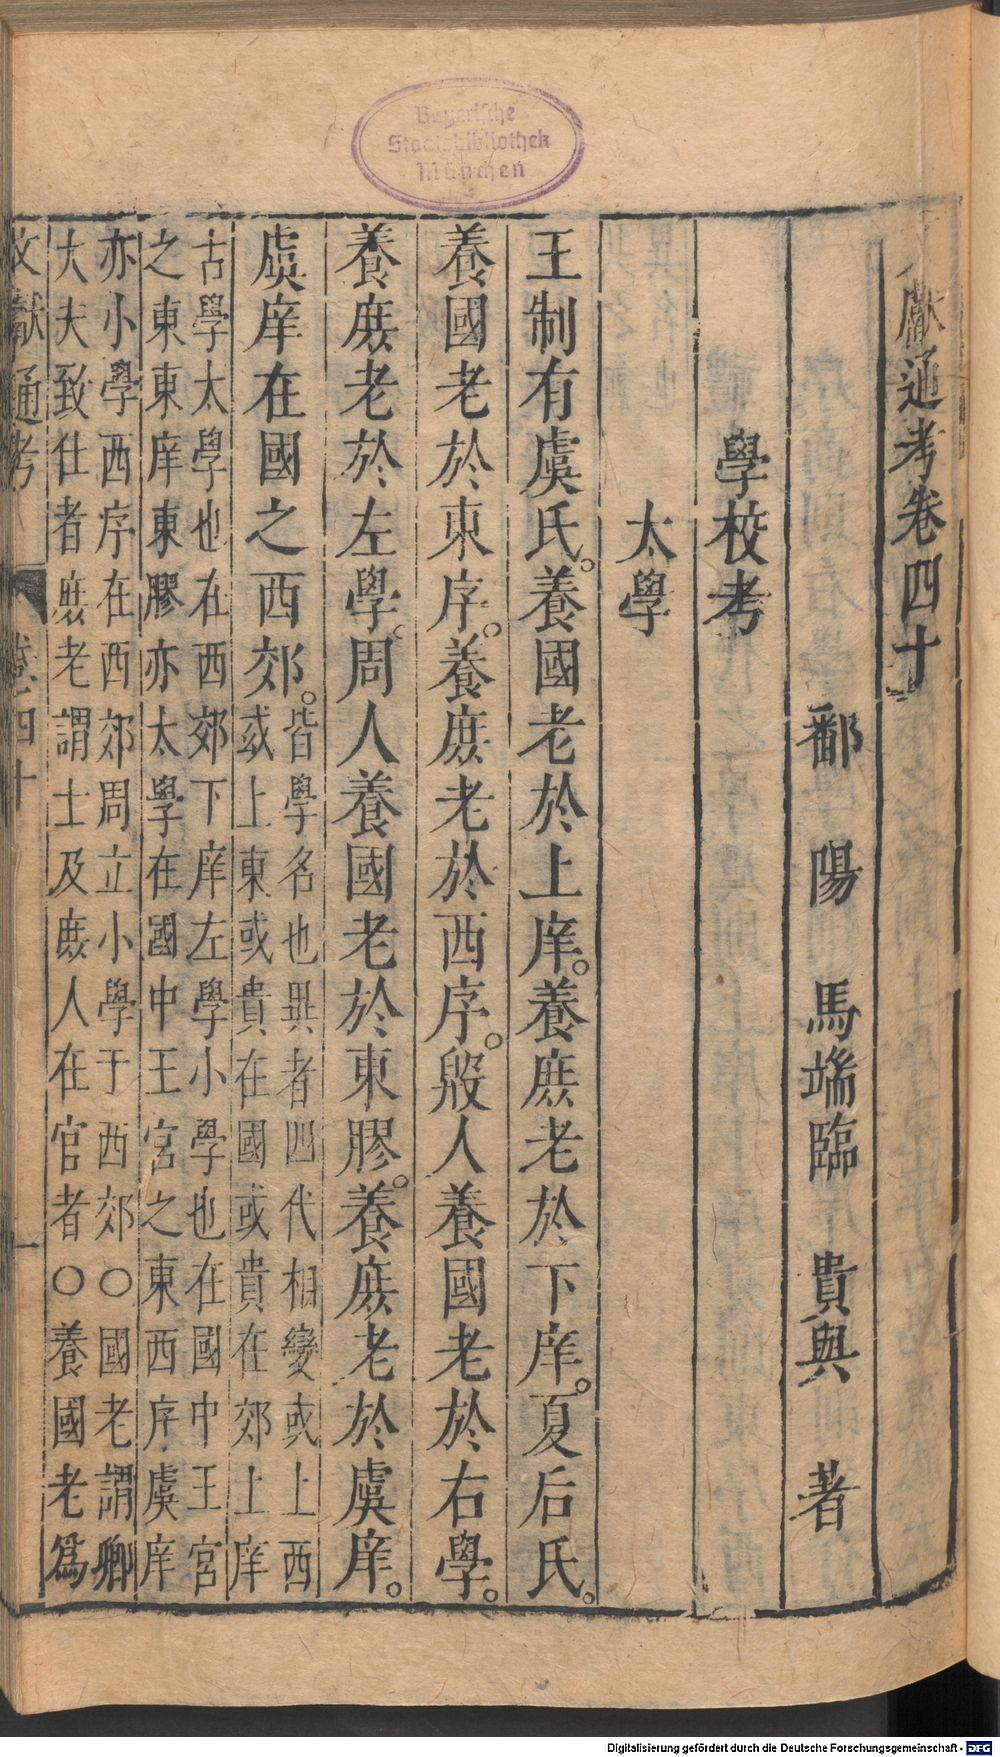 Bayerische
Staatsbibliothek
München
獻通考卷四十
鄱陽馬端臨貴與著
學校考
太學
王制有虞氏。養國老於上庠。養庶老於下庠。夏后氏。
養國老於東序。養庶老於西序。殷人養國老於右學。
養庶老於左學。周人養國老於東膠。養庶老於虞庠。
虞庠在國之西郊。皆學名也異者四代相變或上西
或上東或貴在國或貴在郊上庠
古學太學也在西郊下庠左學小學也在國中王宮
之東東庠東膠亦太學在國中王宮之東西序虞庠
亦小學西序在西郊周立小學于西郊○國老謂卿
大夫致仕者庶老謂士及庶人在官者○養國老爲
文獻通考 卷四十 一
Digitalisierung gefördert durch die Deutsche Forschungsgemeinschaft - DFG